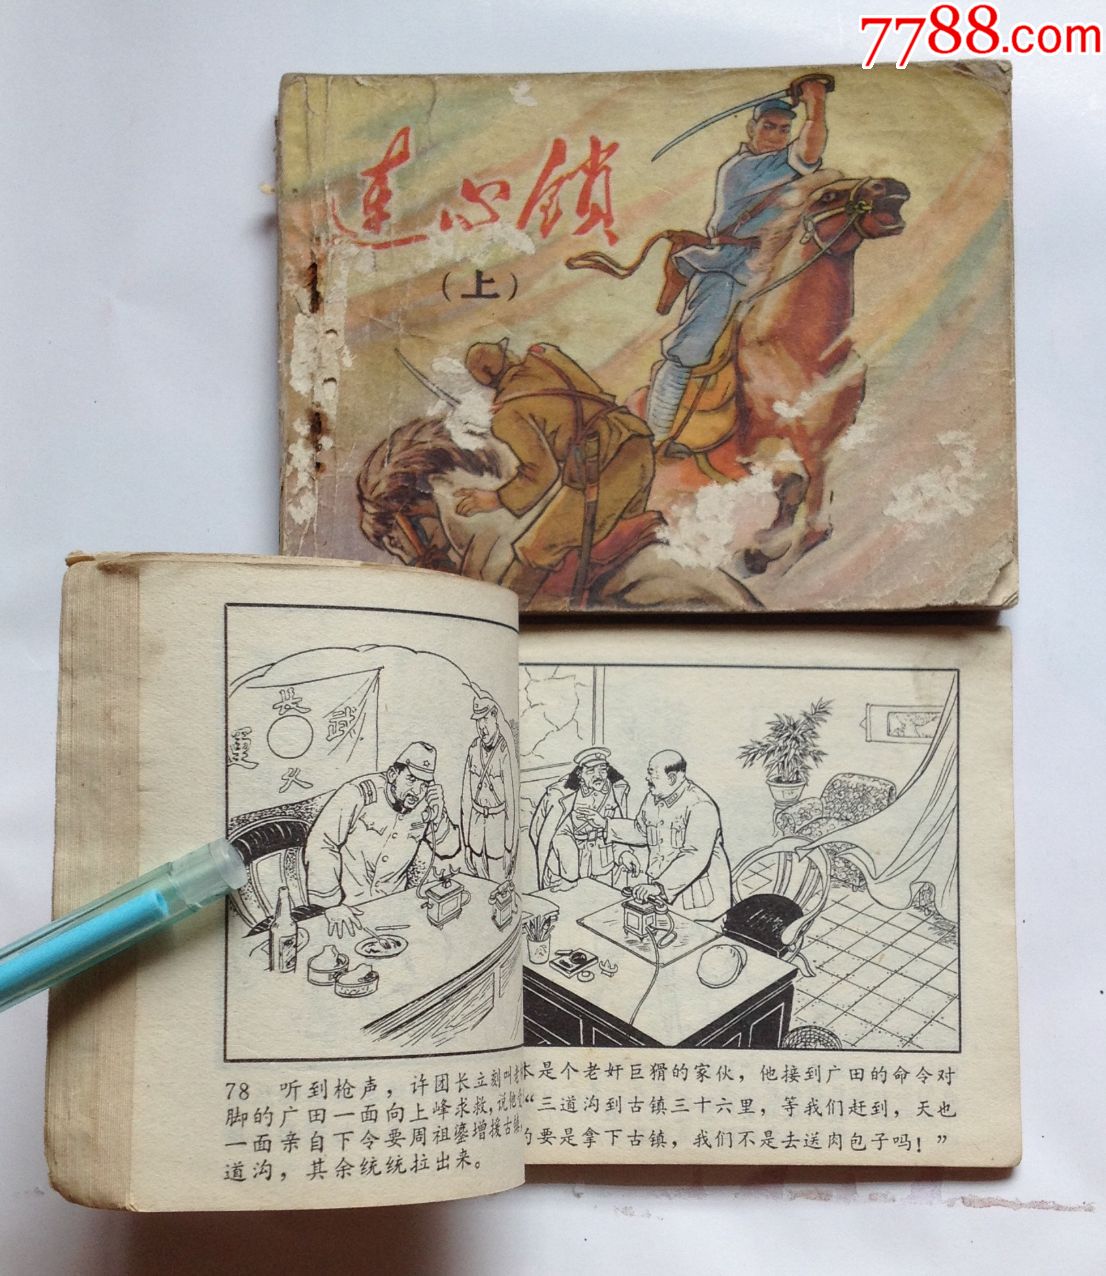 7788.com
连心锁
（上）
武
长
运
久
78 听到枪声，许团长立刻叫
脚的广田一面向上峰求救，说他
一面亲自下令要周祖鎏增援古镇，
道沟，其余统统拉出来。
是个老奸巨猾的家伙，他接到广田的命令对
“三道沟到古镇三十六里，等我们赶到，天也
要是拿下古镇，我们不是去送肉包子吗！”